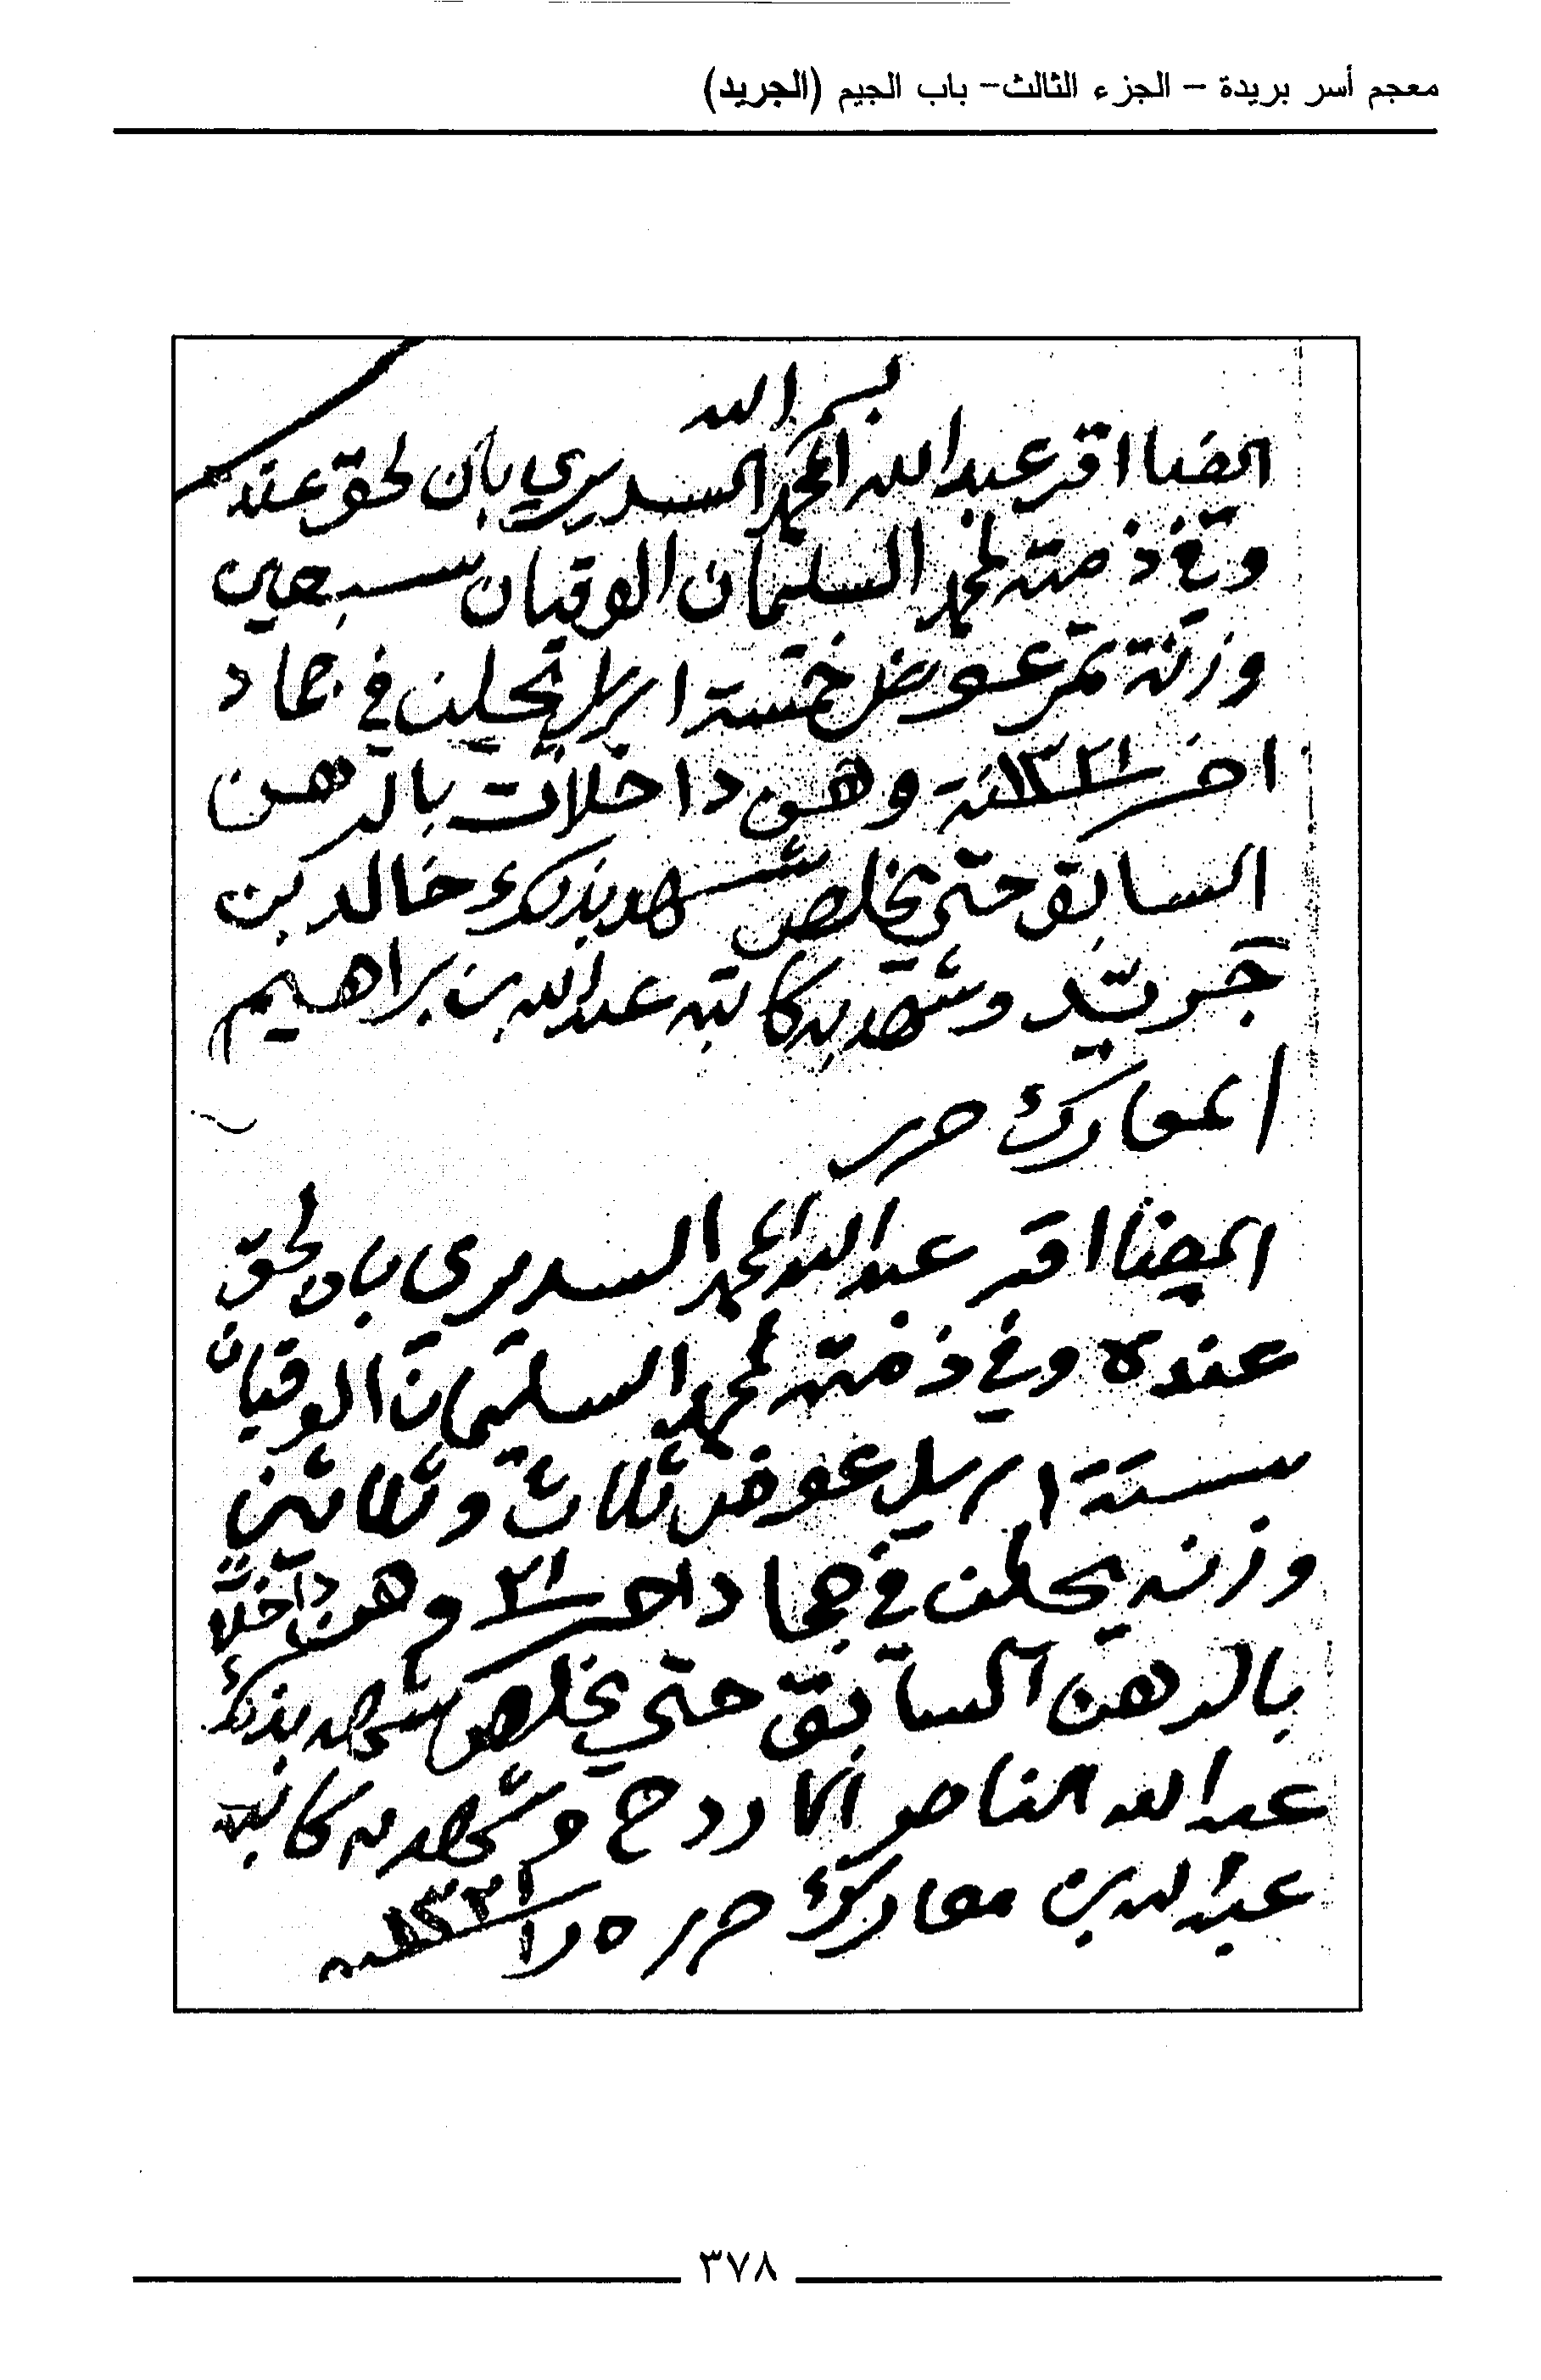 معجم أسر بريدة – الجزء الثالث– باب الجيم (الجريد)
بسم الله
ايضا اقر عبدالله المحمد السديري بان لحق عنده
وفي ذمته لمحمد السليمان الوقيان سبعين
وزنة تمر عوض خمسة اريل يحلن في جماد
اخر سنة ١٣٢١ وهن داخلات بالرهن
السابق حتى يخلص شهد بذلك خالد بن
جريد وشهد به كاتبه عبدالله بن براهيم
المعارك حرر
ايضا اقر عبدالله المحمد السديري بان لحق
عنده وفي ذمته لمحمد السليمان الوقيان
ستة اريل عوض ثلاث وثلاثين
وزنه يحلن في جماد اخر ٢١ وهن داخلات
بالرهن السابق حتى يخلص شهد بذلك
عبدالله الناصر وشهد به كاتبه
عبدالله بن معارك حرر
٣٧٨